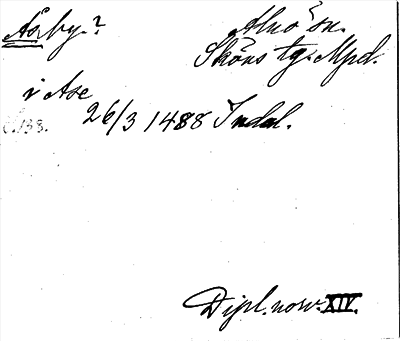 Åsby.? Alnö sn.
Sköns tg. Mpd.
i Ase
26/3 1488 Indal.
C.133.
Dipl. norv. XIV.